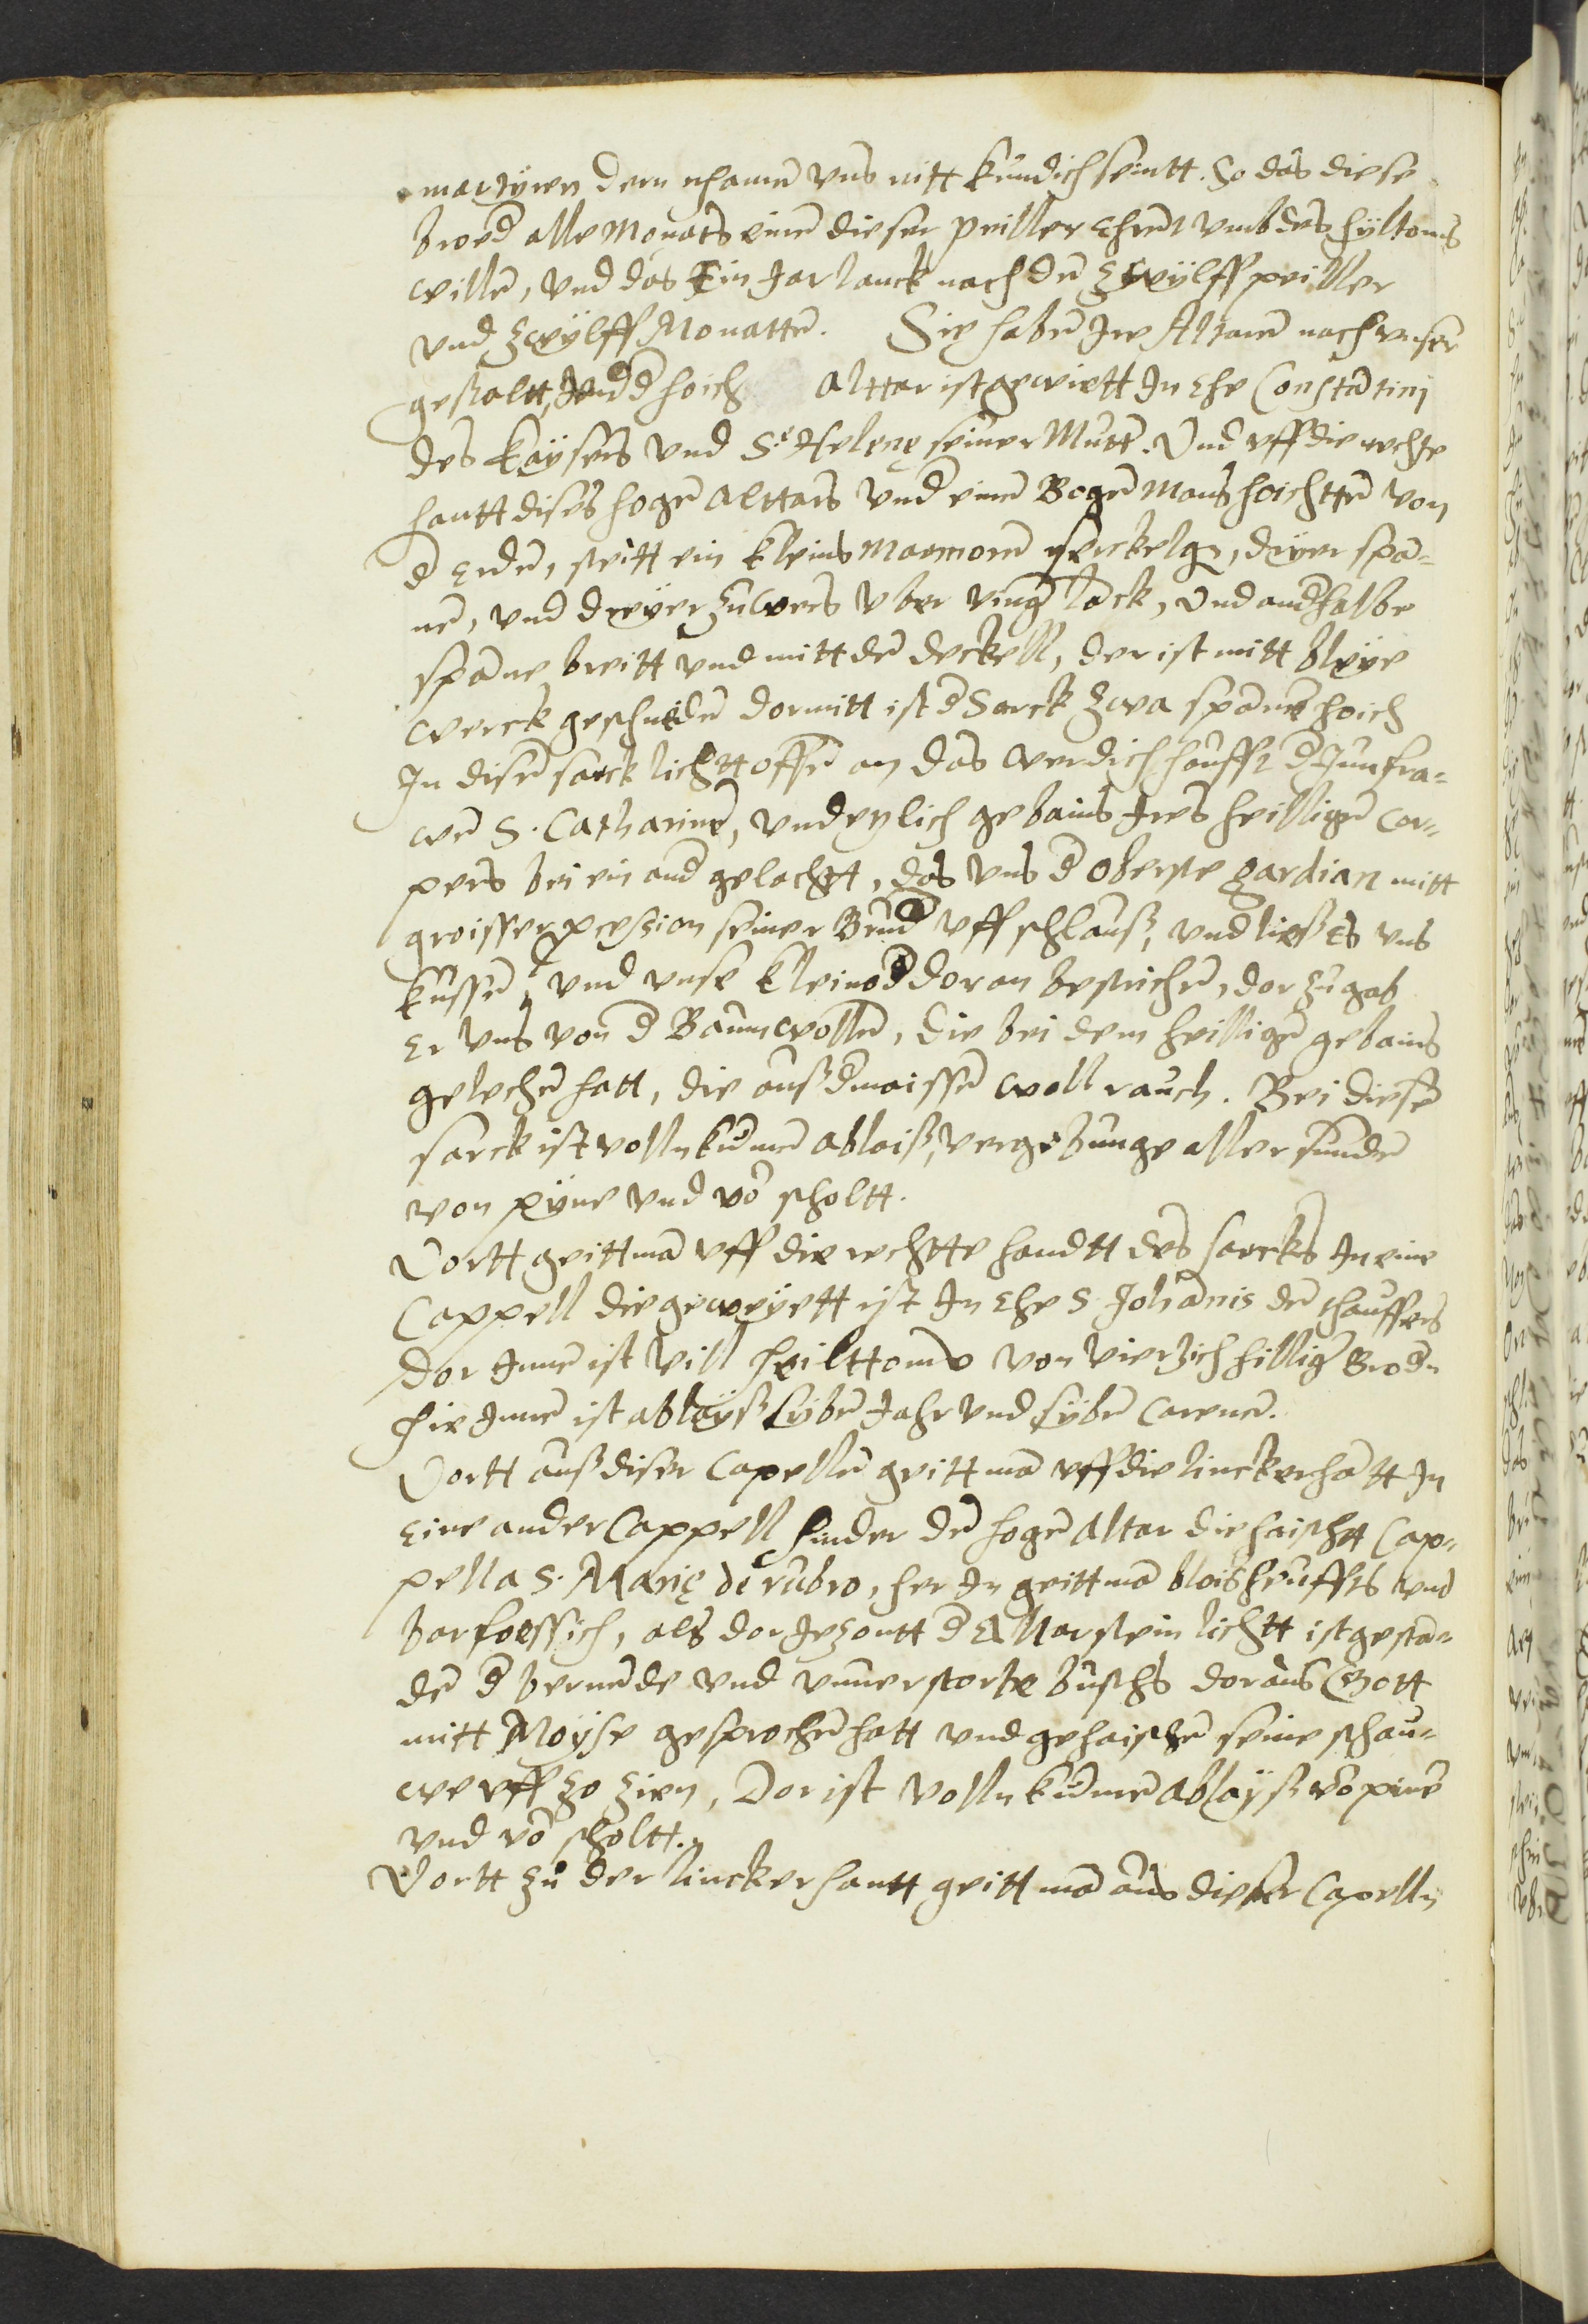 martyren dern nhamē vns nitt kundich seintt. So das diese
broed alle Monats einē dieser peiller Ehrent vmb des hyltoms
willē, vnd das Ein Jar lanck nach dē zwylff peiller
vnd zwylff Monattē. Sie habē Ire Altarē nach vnser
gestaltt, Ire d hoich alttar ist gewiett In Ehr Constātinj
des Kaysers vnd St Helenę seiner Mutt. Vnd vff die rechte
hantt dises hogē alttars vnd einē Bogē Mans hoichttē von
d Erdē, steitt ein kleins Marmorē serckelgē, dryer spa-
nē, vnd dreyer zwers vber ving lack, vnd andhalbe
spāne breitt vnd mitt dē deckell, der ist mitt bleye
werck geschnidē dormitt ist d Sarck zwa spānē hoich
In disē sarck lichtt offē an das werdich hauffz d Junfra-
wē S. Catharinē, vnd etlich gebains Ires heilligē Cor-
pers bei ein and gelachtt, das vns d Oberste gardian mitt
groisser pcession seiner Brud vff schlaus, vnd ließ es vns
kussē, vnd vnse kleinod doran bestrichē, dor zu gab
Er vns von d Baumwollē, die bei dem heilligē gebains
gelechē hatt, die auß d maissē woll rauch. Bei diesē
sarck ist vollnkumē ablaiß, vergebunge aller sundē
von pyne vnd vō scholtt.
Vortt geitt mā vff die rechtte handtt des sarcks In eine
Cappell die geweyett ist In Ehr S. Johānis dē thauffers
dor Innē ist vill heilttoms von viertzich hillig Brodn
hie Innē ist ablayß sybē Jahr vnd sybē Carenē.
Vortt auß diser Capellē geitt mā vff die lincker hātt In
Eine ander Cappell hinder dē hogē Altar die haischtt Cap-
pella S. Marię de rubro, her In geitt mā blois heuffts vnd
barfoessich, als dor Iezontt d Altar stein lichtt ist gestā-
dē d bernēde vnd vnuerstorbe buschs doraus Gott
mitt Moyse gesprochē hatt vnd gehaischē seine schau-
we vff zo zien, Dor ist vollnkumē ablayß vō pinē
vnd vō scholtt.
Vortt zu der lincker hantt geitt mā aus dieser Capelln